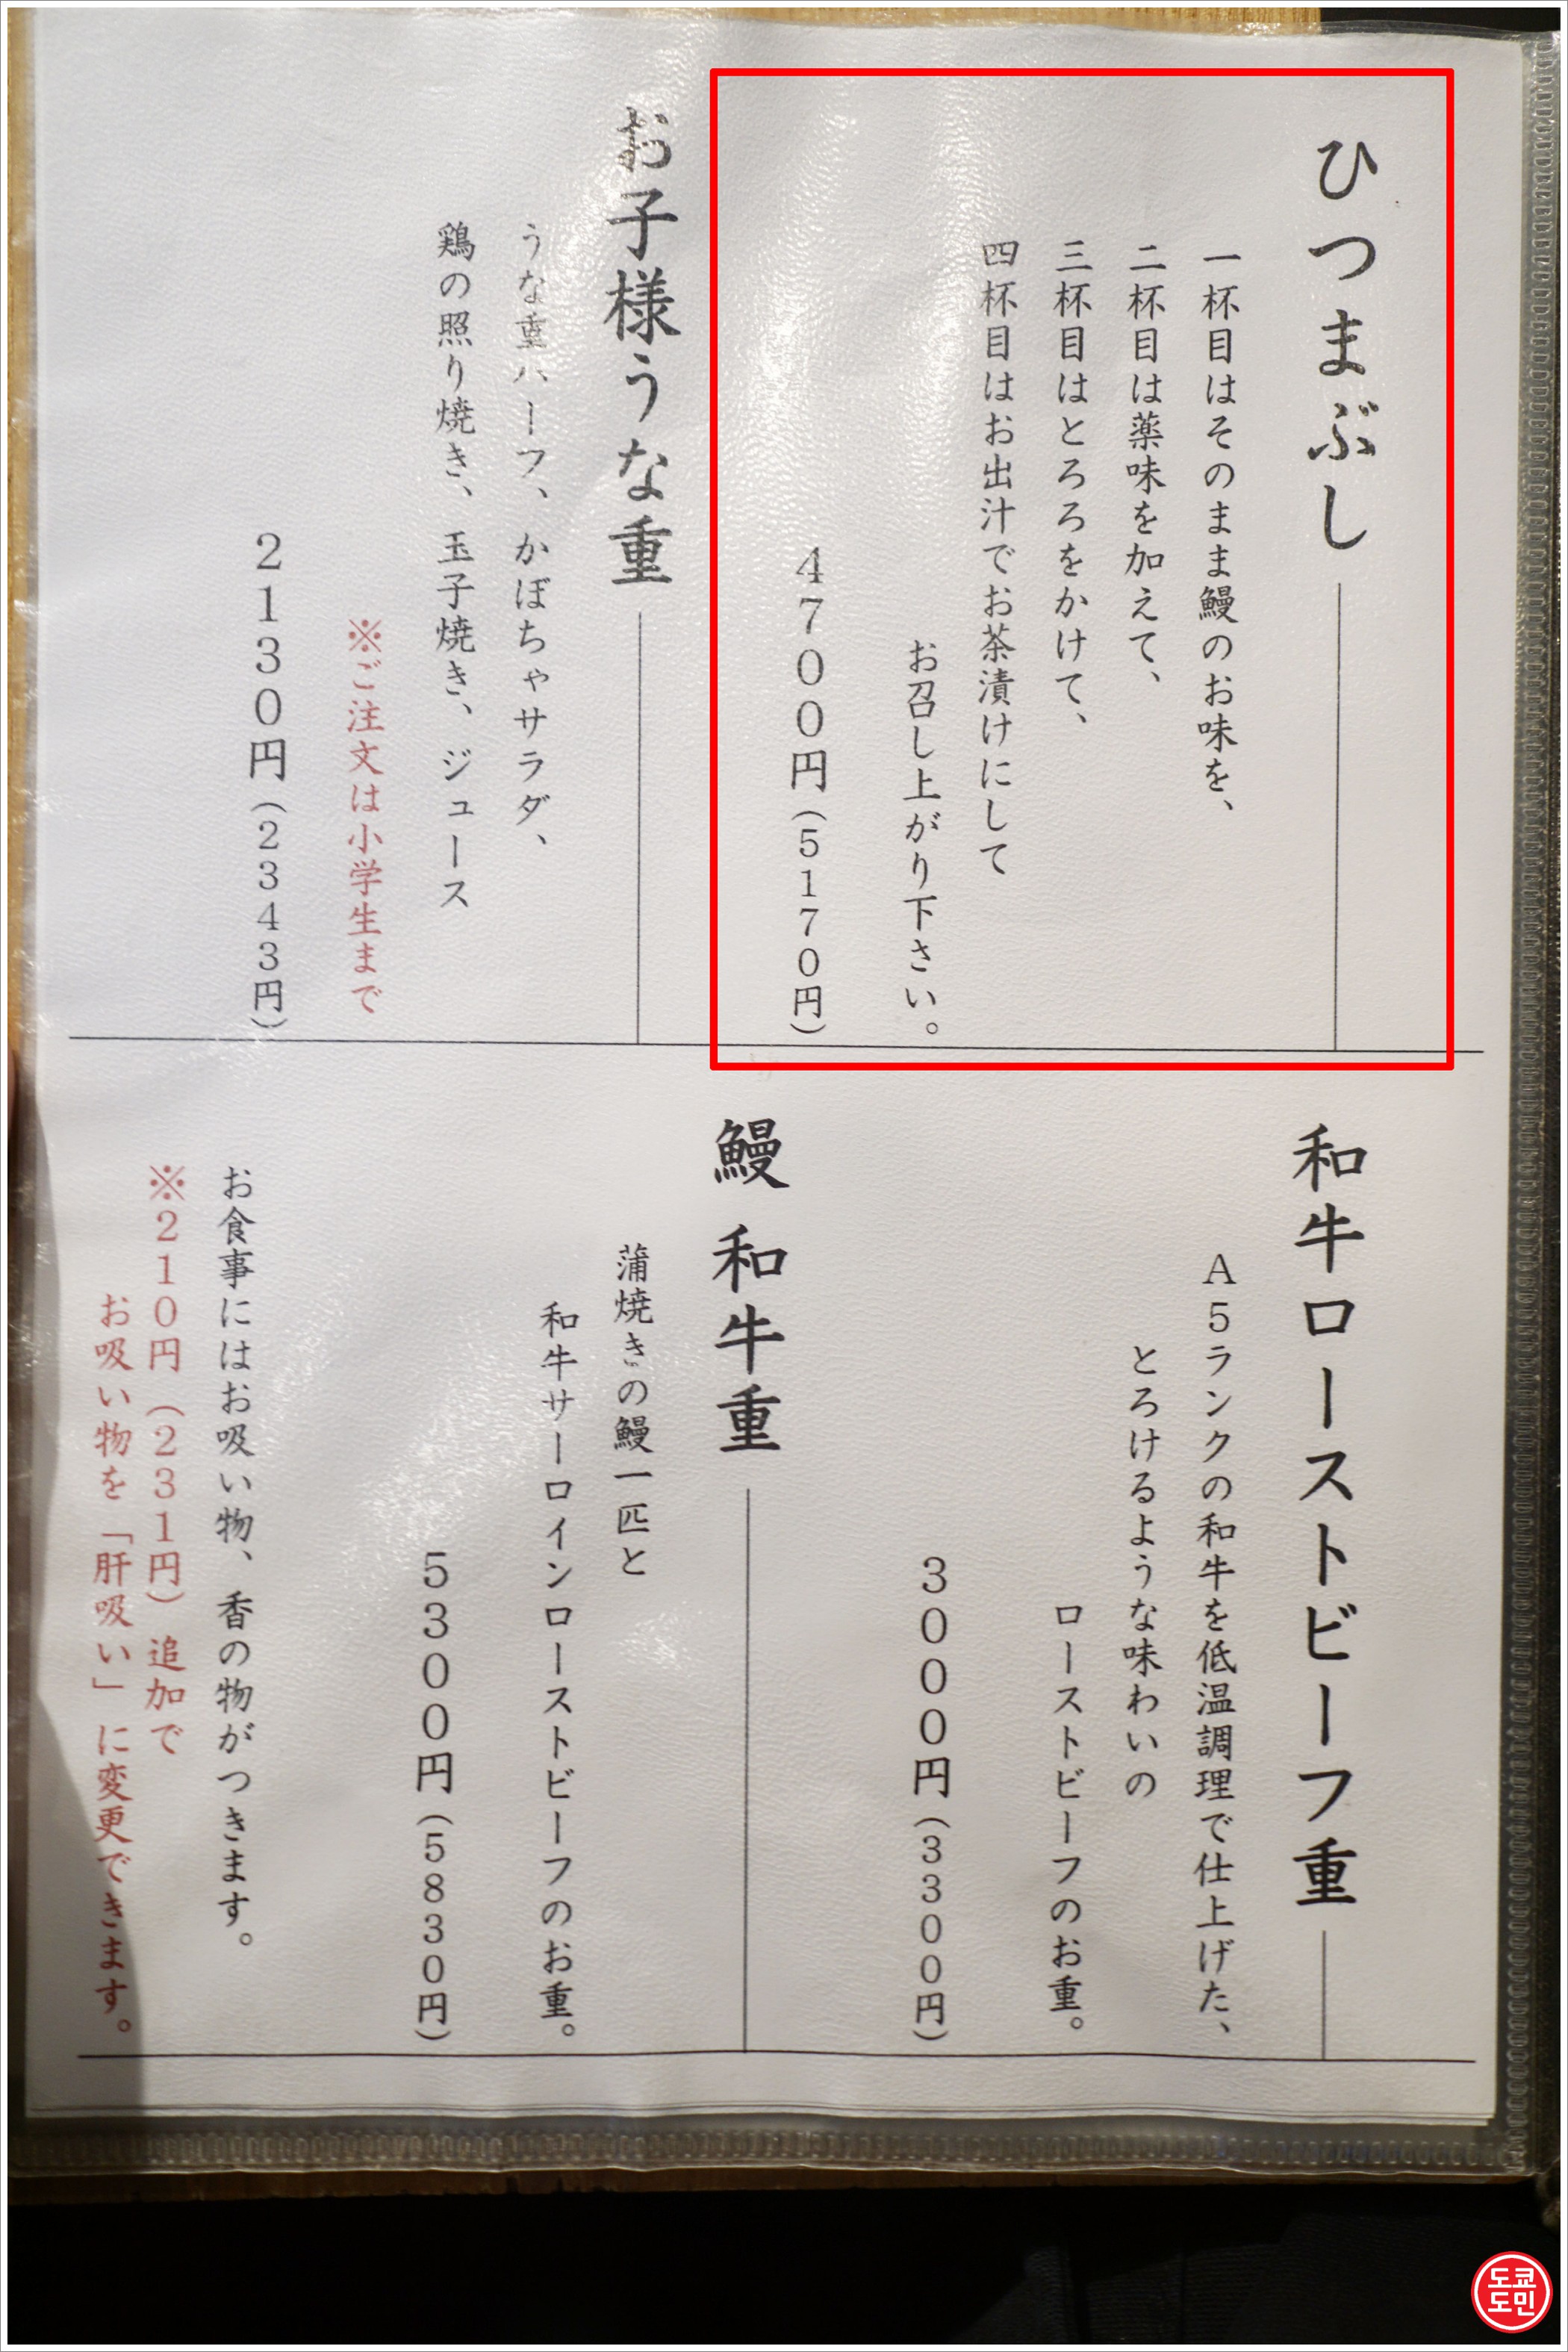 ひつまぶし
一杯目はそのまま鰻のお味を、
二杯目は薬味を加えて、
三杯目はとろろをかけて、
四杯目はお出汁でお茶漬けにして
お召し上がり下さい。
4700円(5170円)
お子様うな重
うな重ハーフ、かぼちゃサラダ、
鶏の照り焼き、玉子焼き、ジュース
※ご注文は小学生まで
2130円(2343円)
和牛ローストビーフ重
A5ランクの和牛を低温調理で仕上げた、
とろけるような味わいの
ローストビーフのお重。
3000円(3300円)
鰻 和牛重
蒲焼きの鰻一匹と
和牛サーロインローストビーフのお重。
5300円(5830円)
お食事にはお吸い物、香の物がつきます。
※210円(231円)追加で
お吸い物を「肝吸い」に変更できます。
도쿄
도민